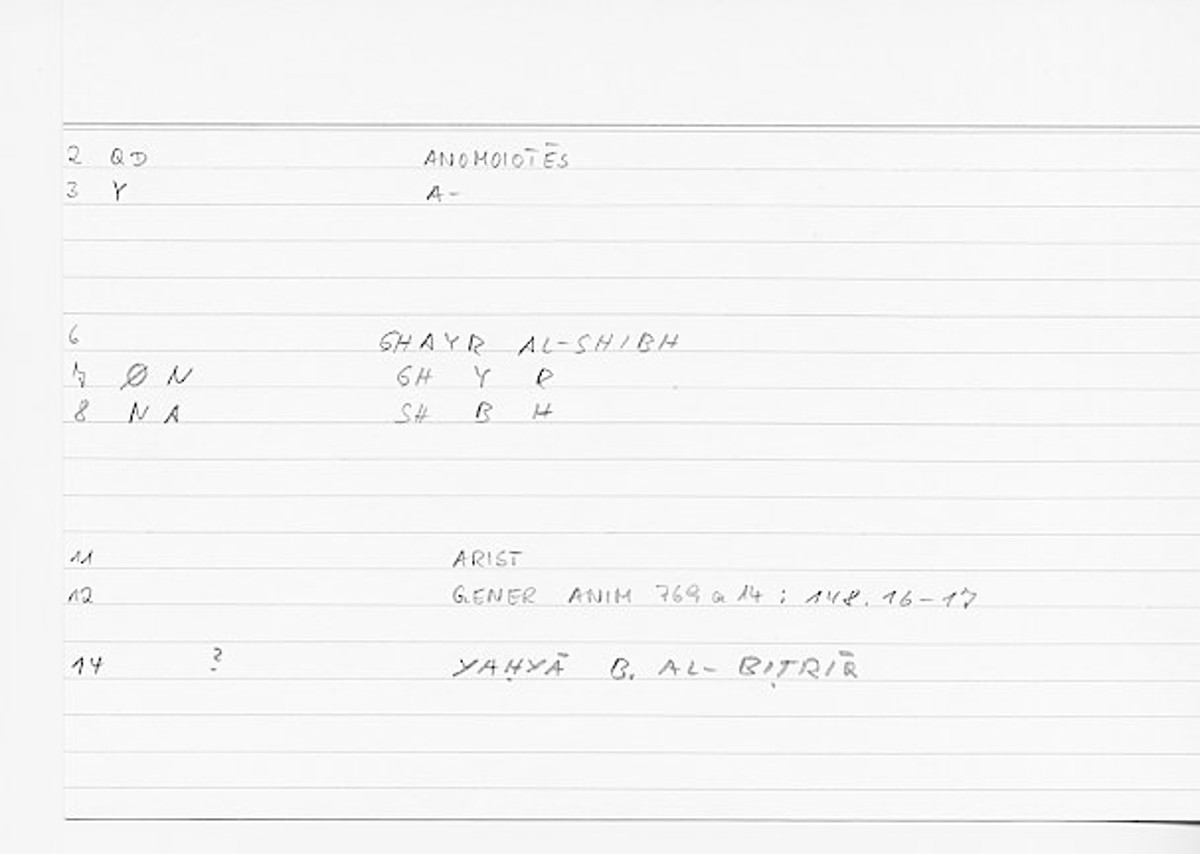 2 QD ANOMOIOT̄ĒS
3 Y A-
6 GHAYR AL-SHIBH
7 Ø N GH Y R
8 N A SH B H
11 ARIST
12 GENER ANIM 769 a 14 : 148. 16-17
14 ? YAḤYĀ B. AL- BIṬRĪQ